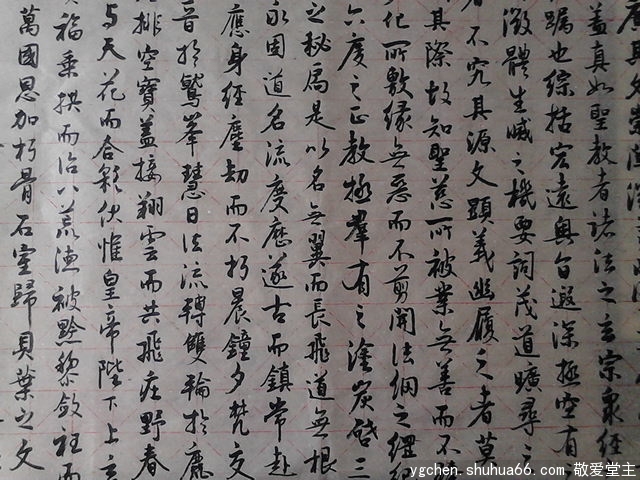 廣其文崇闡微言非
蓋真如聖教者諸法之玄宗衆經
躅也綜括宏遠奧旨遐深極空有之
微體生滅之機要詞茂道曠尋之
者不究其源文顯義幽履之者莫
其際故知聖慈所被業無善而不臻
化所敷緣無惡而不剪開法網之綱紀
六度之正教拯羣有之塗炭啓三
之秘扃是以名無翼而長飛道無根
永固道名流慶歷遂古而鎮常赴
應身經塵劫而不朽晨鐘夕梵交
音於鷲峯慧日法流轉雙輪於鹿
排空寶蓋接翔雲而共飛莊野春
與天花而合彩伏惟皇帝陛下上玄
福垂拱而治八荒德被黔黎斂衽而
萬國恩加朽骨石室歸貝葉之文
ygchen.shuhua66.com 敬爱堂主